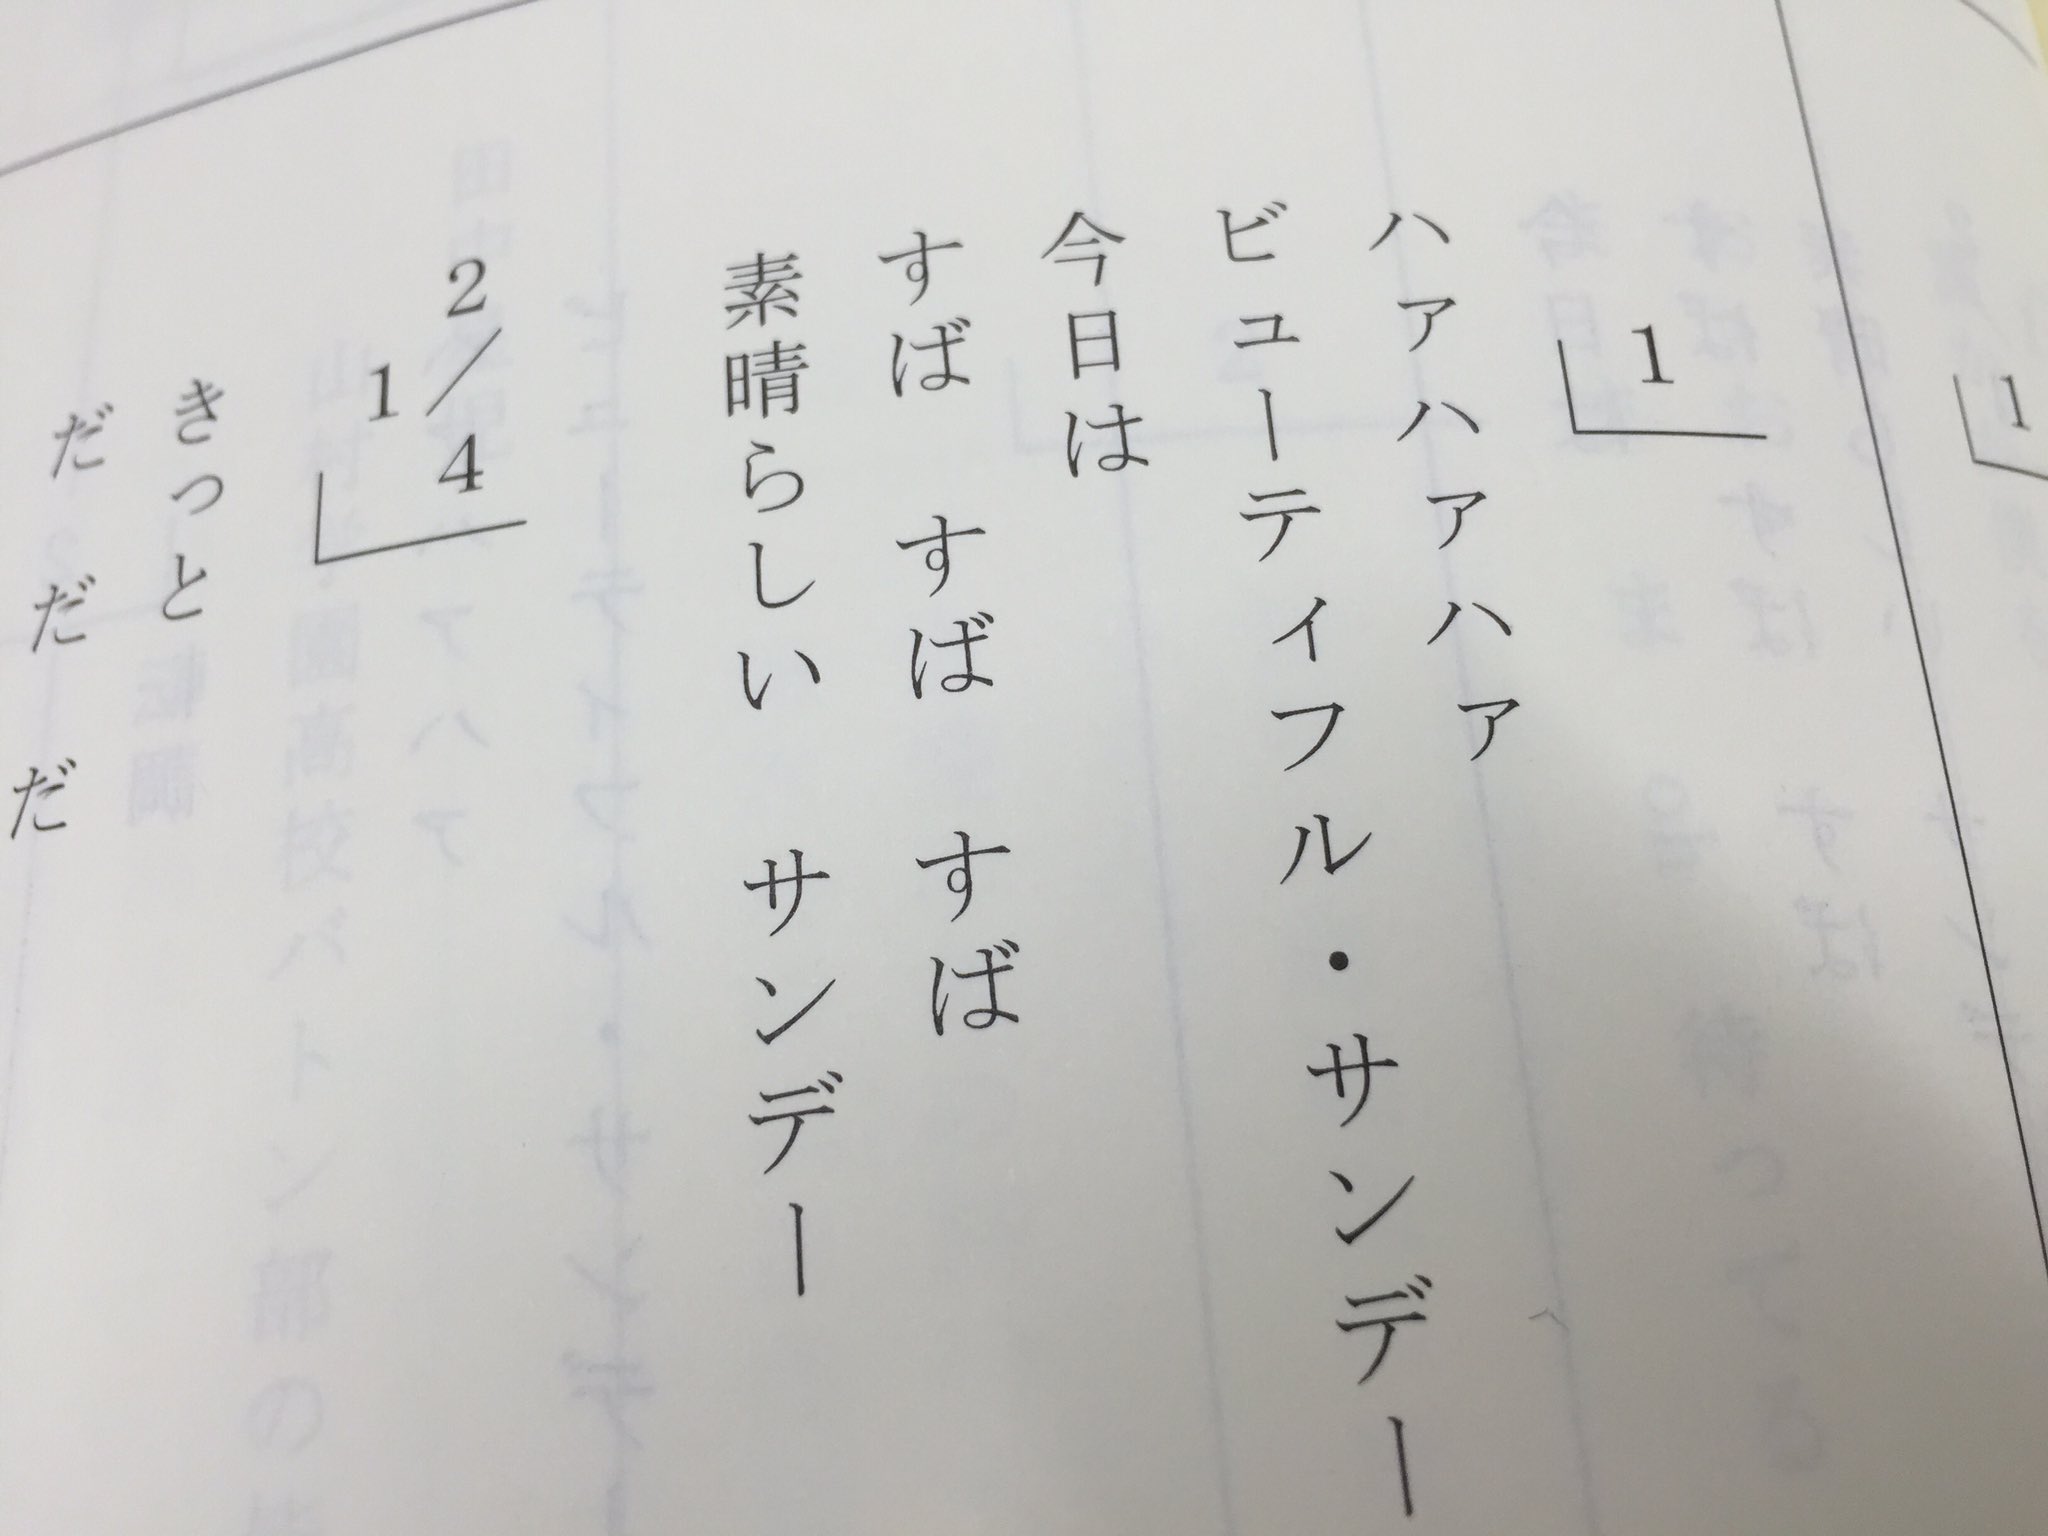 1
1
ハァハァハァ
ビューティフル・サンデー
今日は
すば すば すば
素晴らしい サンデー
2/4
1
きっと
だ だ だ